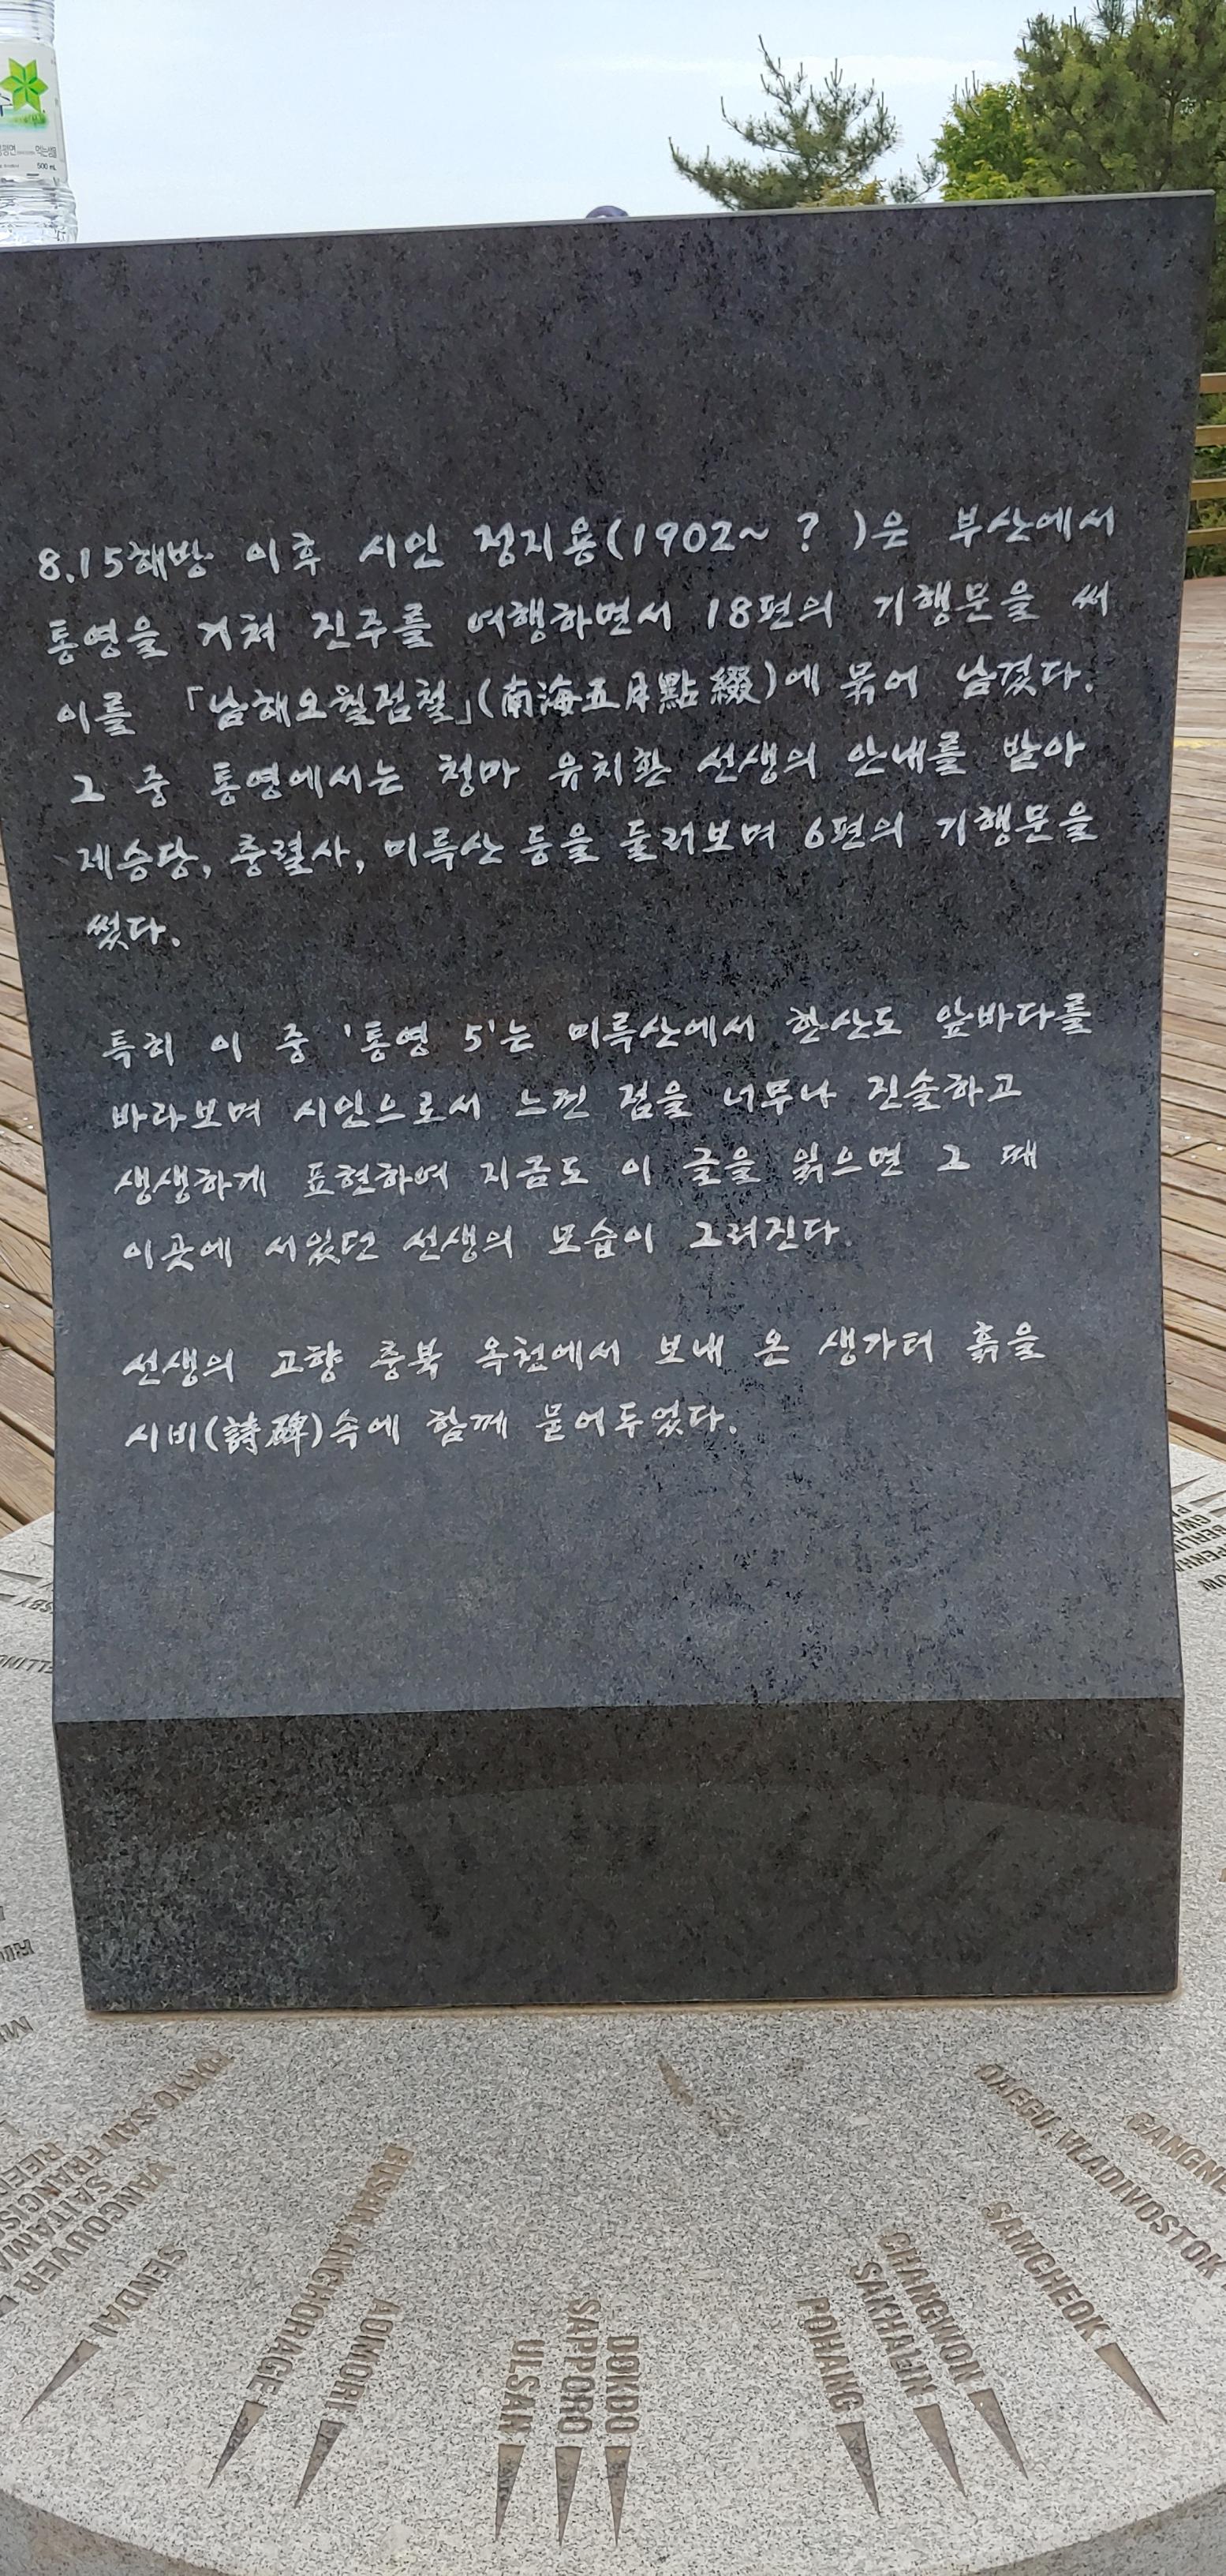 먹는샘물
500 mL
8.15해방 이후 시인 정지용(1902~ ? )은 부산에서
통영을 거쳐 진주를 여행하면서 18편의 기행문을 써
이를 「남해오월점철」(南海五月點綴)에 묶어 남겼다.
그 중 통영에서는 청마 유치환 선생의 안내를 받아
제승당, 충렬사, 미륵산 등을 둘러보며 6편의 기행문을
썼다.
특히 이 중 '통영 5'는 미륵산에서 한산도 앞바다를
바라보며 시인으로서 느낀 점을 너무나 진솔하고
생생하게 표현하여 지금도 이 글을 읽으면 그 때
이곳에 서있던 선생의 모습이 그려진다.
선생의 고향 충북 옥천에서 보내 온 생가터 흙을
시비(詩碑)속에 함께 묻어두었다.
TOKYO SAN FRANCIS
VANCOUVER
SAITAMA
SENDAI
BUSAN ANCHORAGE
AOMORI
ULSAN
SAPPORO
DOKDO
POHANG
SAKHALIN
CHANGWON
SAMCHEOK
DAEGU, VLADIVOSTOK
GANGN